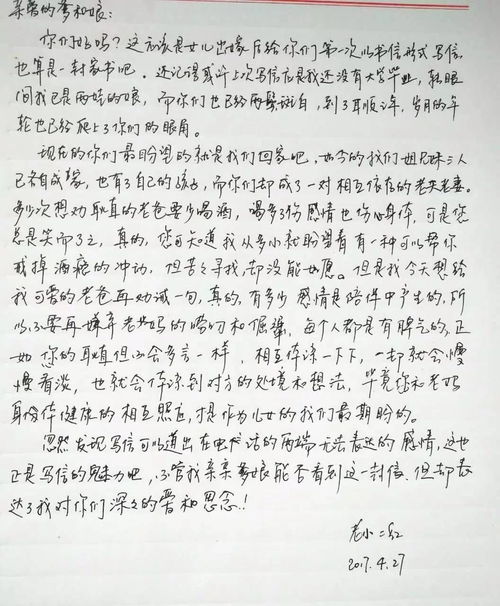 亲爱的爹和娘:
你们好吗?这应该是女儿出嫁后给你们第一次以书信形式写信,
也算是一封家书吧。还记得或许上次写信应是我还没有大学毕业,转眼
间我已是两娃的娘,而你们也已经两鬓斑白,到了耳顺之年,岁月的年
轮也已经爬上了你们的眼角。
现在的你们最盼望的就是我们回家吧,如今的我们姐兄妹三人
已各自成家,也有了自己的孩子,而你们却成了一对相互依存的老夫老妻。
多少次想劝耿直的老爸要少喝酒,喝多了伤感情也伤身体,可是您
总是笑而了之,真的,您可知道我从多小就盼望着有一种可以帮你
戒掉酒瘾的冲动,但苦苦寻找,却没能如愿。但是我今天想给
我可爱的老爸再劝诫一句,真的,有多少感情是陪伴中产生的,所
以不要再嫌弃老妈的唠叨和倔犟,每个人都是有脾气的,正
如您的耿直但不会多言一样,相互体谅一下下,一切就会慢
慢看淡,也就会体谅到对方的处境和想法,毕竟你和老妈
身体健康的相互照应,才是作为儿女的我们最期盼的。
忽然发现写信可以道出在电话的两端无法表达的感情,这也
正是写信的魅力吧,不管我亲亲爹娘能否看到这一封信,但却表
达了我对你们深深的爱和思念!
老小:红
2017.4.27